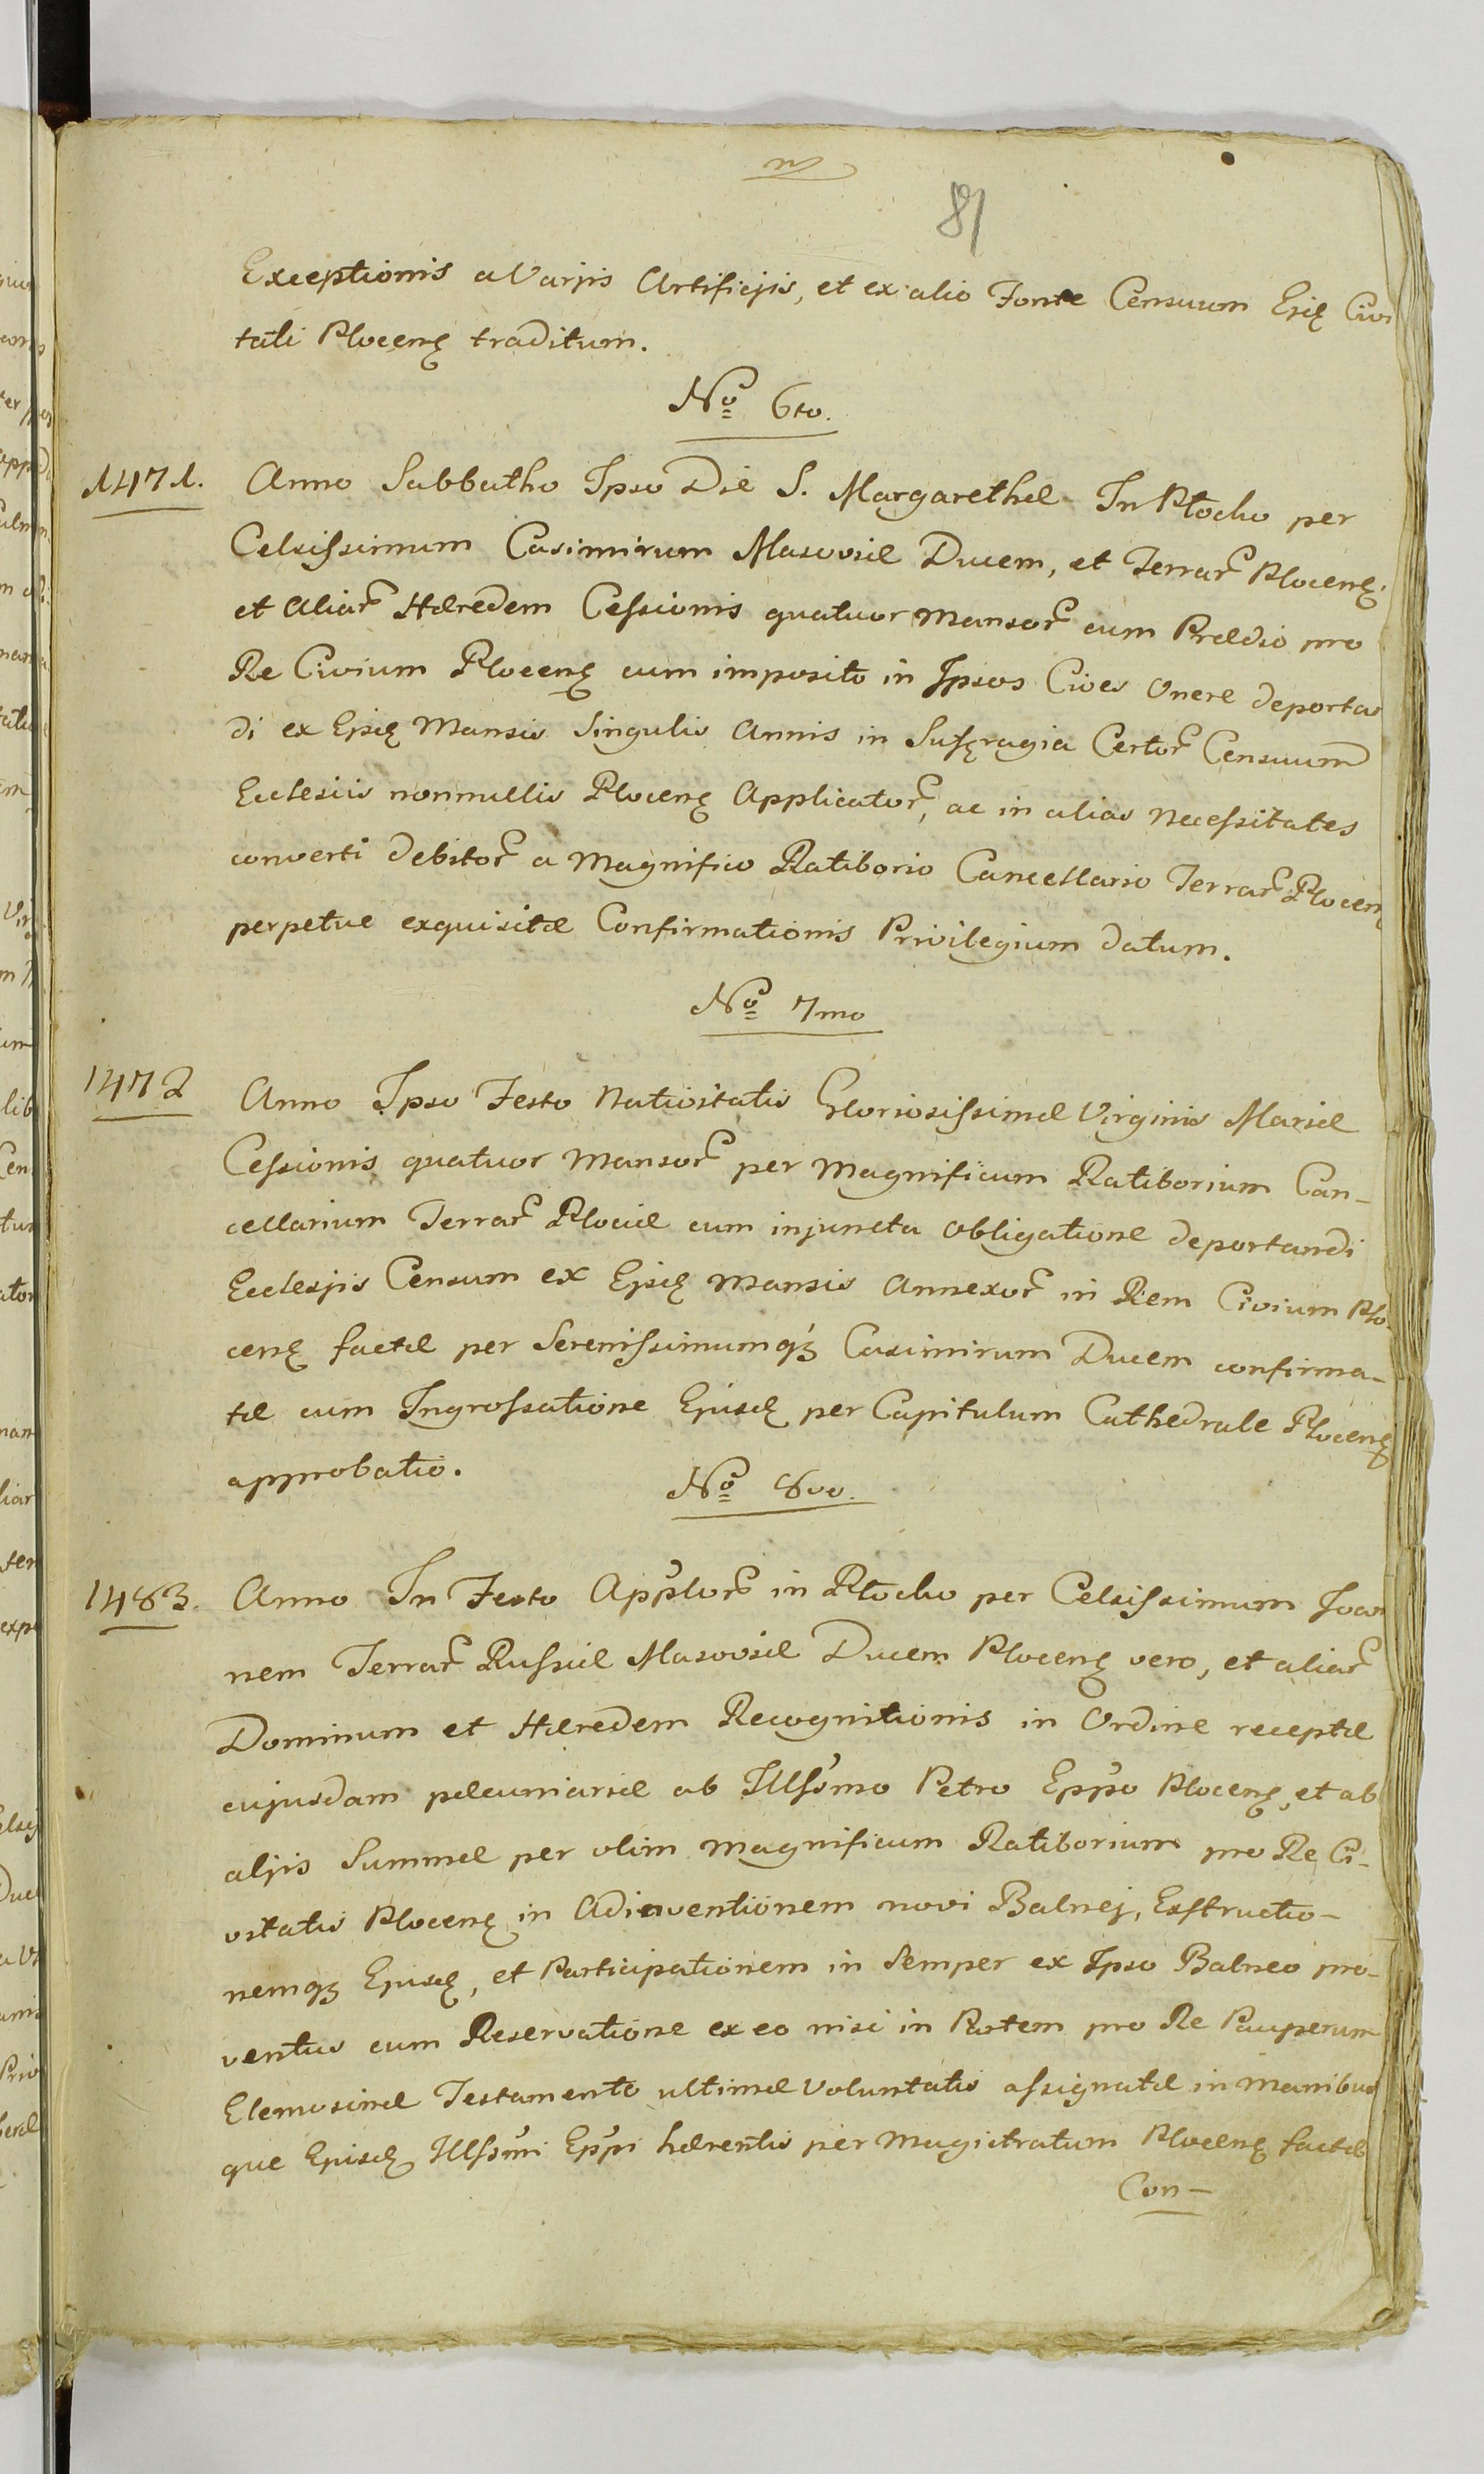 81
Exceptionis a Varjis Artificjis, et ex alio Fonte Censuum Ejsę Civi
tati Plocenę traditum.
No 6to.
1471. Anno Sabbatho Ipso Die S. Margarethæ In Płocko per
Celsissimum Casimirum Masoviæ Ducem, et Terrar Plocenę.
et Aliar Hæredem Cessionis quatuor Mansor cum Prædio pro
Re Civium Plocenę cum imposito in Ipsos Cives Onere deportan
di ex Ejsę Mansis Singulis Annis in Sufragia Certor Censuum
Ecclesiis nonnullis Plocenę Applicator, ac in alias necessitates
converti debitor a Magnifico Ratiborio Cancellario Terrar Plocen
perpetue exquisitæ Confirmationis Privilegium datum.
No 7mo
1472 Anno Ipso Festo Nativitatis Gloriosissimæ Virginis Mariæ
Cessionis quatuor Mansor per Magnificum Ratiborium Can-
cellarium Terrar Plociæ cum injuncta obligatione deportandi
Ecclesjis Censum ex Ejsdę Mansis Annexor in Rem Civium Plo-
cenę factæ per Serenissimumqȝ Casimirum Ducem confirma-
tæ cum Ingrossatione Ejusdę per Capitulum Cathedrale Plocenę
approbatio.
No 8vo.
1483. Anno In Festo App̃lor in Płocko per Celsissimum Joan
nem Terrar Russiæ Masoviæ Ducem Plocenę vero, et aliar
Dominum et Hæredem Recognitionis in Ordine receptæ
cujusdam pæcuniariæ ab Illss̃mo Petro Epp̃o Plocenę, et ab
aljis Summæ per olim Magnificum Ratiborium pro Re Ci-
vitatis Plocenę in Adinventionem novi Balnej, Exstructio-
nemqȝ Ejusdę, et Participationem in Semper ex Ipso Balneo pro-
ventus cum Reservatione ex eo nisi in Partem pro Re Pauperum
Elemosinæ Testamento ultimæ Voluntatis assignatæ in manibus
que Ejusdę Illss̃mi Epp̃i hærentis per Magistratum Plocenę factæ
Con-